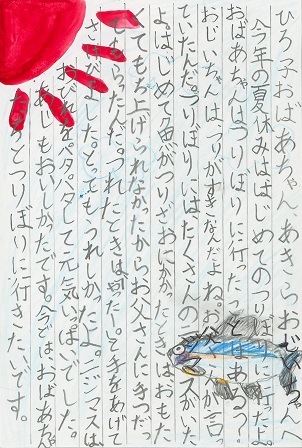 ひろ子おばあちゃん、あきらおじいちゃんへ
今年の夏休みははじめてのつりぼりに行ったよ。
おばあちゃんはつりぼりに行ったことはある?
おじいちゃんはつりがすきなんだよね。お父さんが言っ
ていたんだ。つりぼりにはたくさんのニジマスがいた
よ。はじめて魚がつりざおにかかったときはおもた
くてもち上げられなかったからお父さんに手つだっ
てもらったんだ。つれたときは、やったーと手をあげて
さけびました。とってもうれしかったよ。ニジマスは
おびれをパタパタして元気いっぱいでした。
あじもおいしかったです。今どはおばあちゃん
たちとつりぼりに行きたいです。